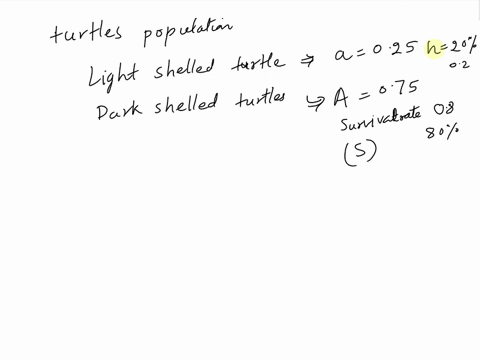 turtles population
Light shelled turtle ⇒ a = 0.25 h=20%
0.2
Dark shelled turtles ↳ A = 0.75
Survivalrate 0.8
80%
(S)